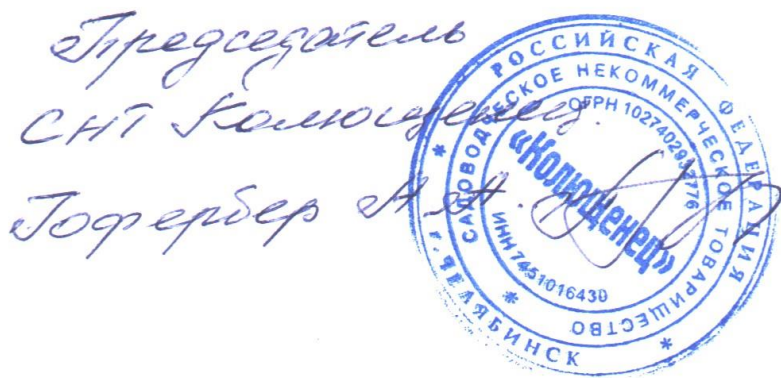 Председатель
СНТ Колющенец.
Гофербер А.А.
РОССИЙСКАЯ ФЕДЕРАЦИЯ
* г. ЧЕЛЯБИНСК *
САДОВОДЧЕСКОЕ НЕКОММЕРЧЕСКОЕ ТОВАРИЩЕСТВО *
ОГРН 1027402932776
«Колющенец»
ИНН 7451016430